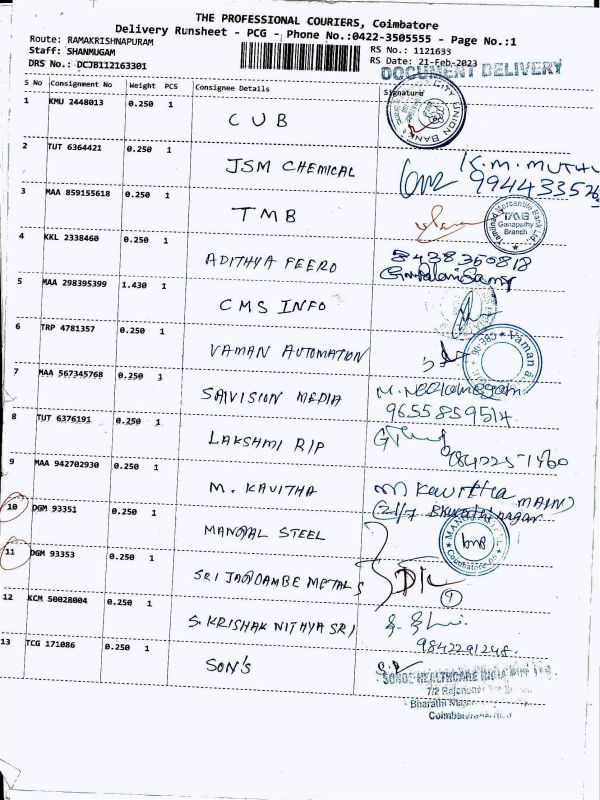 THE PROFESSIONAL COURIERS, Coimbatore
Delivery Runsheet - PCG - Phone No.:0422-3505555 - Page No.:1
Route: RAMAKRISHNAPURAM
RS No.: 1121633
Staff: SHANMUGAM
RS Date: 21-Feb-2023
DRS No.: DCJB112163301
DOCUMENT DELIVERY
S No Consignment No Weight PCS Consignee Details Signature
1 KMU 2448013 0.250 1 CUB
CITY UNION BANK
2 TUT 6364421 0.250 1 JSM CHEMICAL K.M. MUTHU
3 MAA 859155618 0.250 1 TMB
Tamilnad Mercantile Bank Ltd
TMB
Ganapathy
Branch
4 KKL 2338460 0.250 1 ADITHYA FEERO 8438350818
5 MAA 298395399 1.430 1 CMS INFO
6 TRP 4781357 0.250 1 VAMAN AUTOMATION
Vaman
7 MAA 567345768 0.250 1 SAIVISION MEDIA
9655859514
8 TUT 6376191 0.250 1 LAKSHMI RIP
9 MAA 942702930 0.250 1 M. KAVITHA M Kavitha
10 DGM 93351 0.250 1 MANGAL STEEL
11 DGM 93353 0.250 1 SRI JAGDAMBE METALS
12 KCM 50028004 0.250 1 S. KRISHAK NITHYA SRI
9842291248.
13 TCG 171086 0.250 1 SON'S
7/2
Bharathi